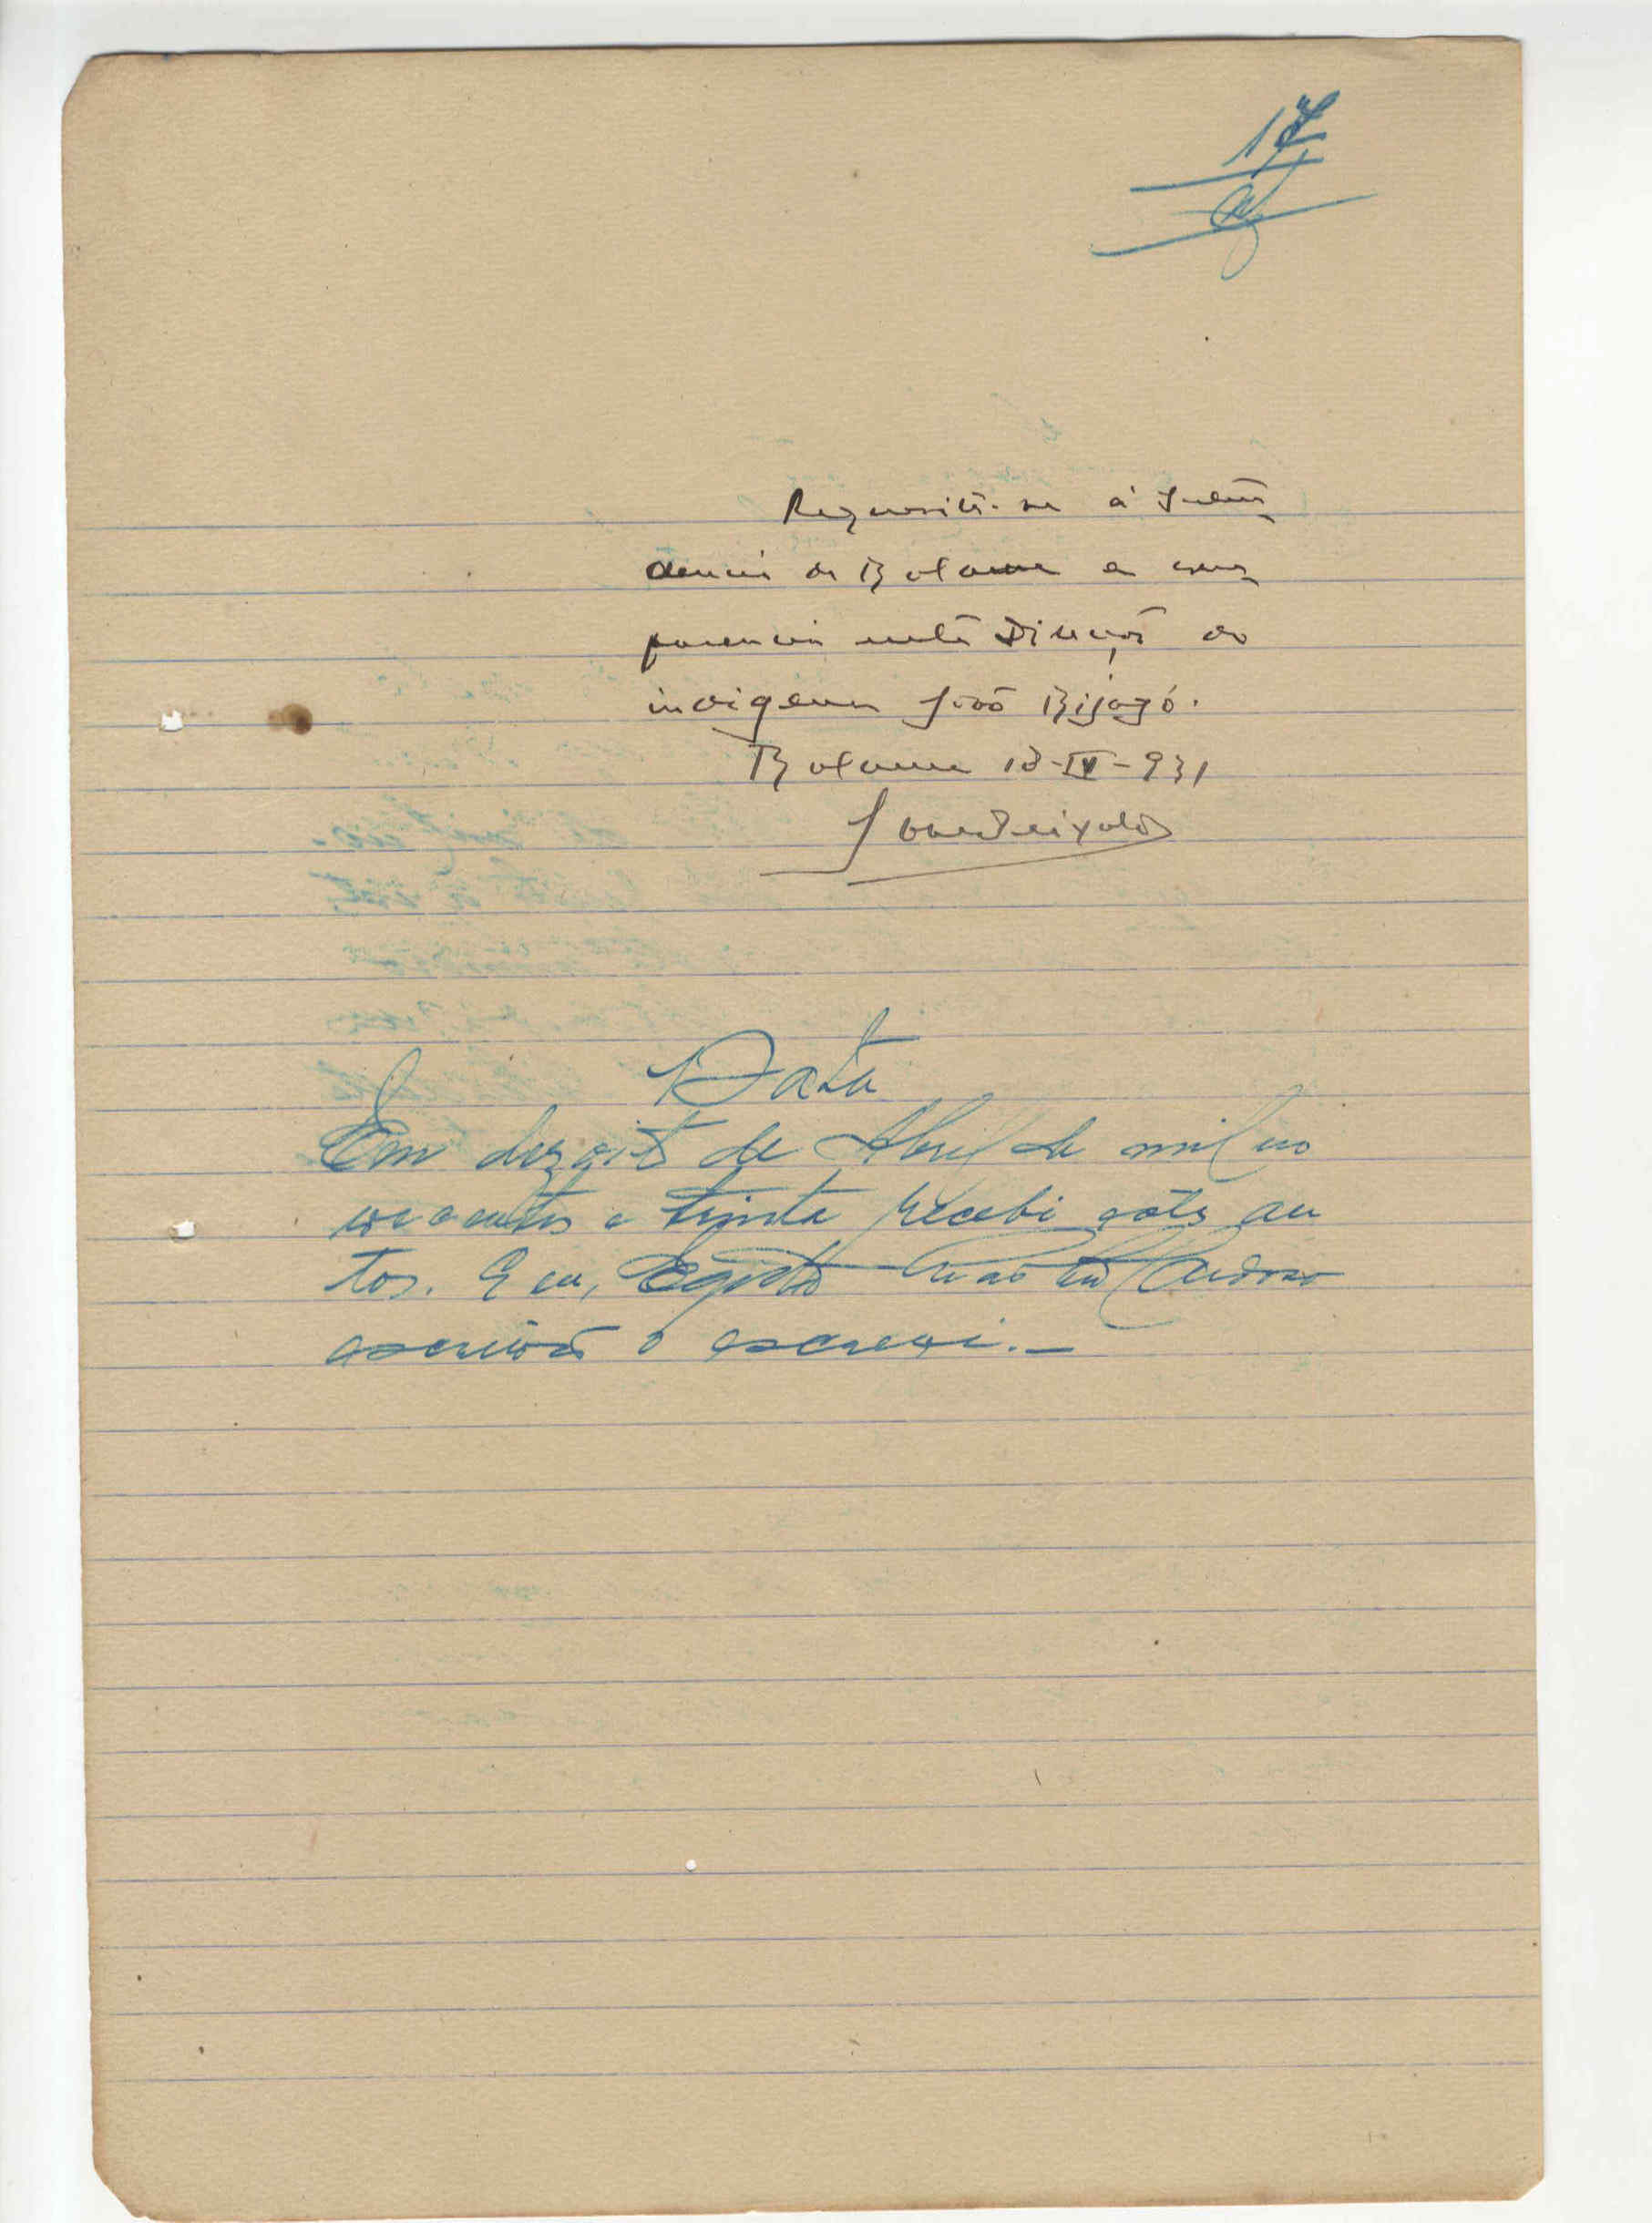 17
Requisite-se á Inten-
dencia de Bolama a com-
parencia nesta Direcção do
indigena João Bijagó.
Bolama 18-IV-931
Data
Em dezoito de Abril de mil no
vecentos e trinta recebi estes au
tos. E eu, Cardoso
escrivão o escrevi.-